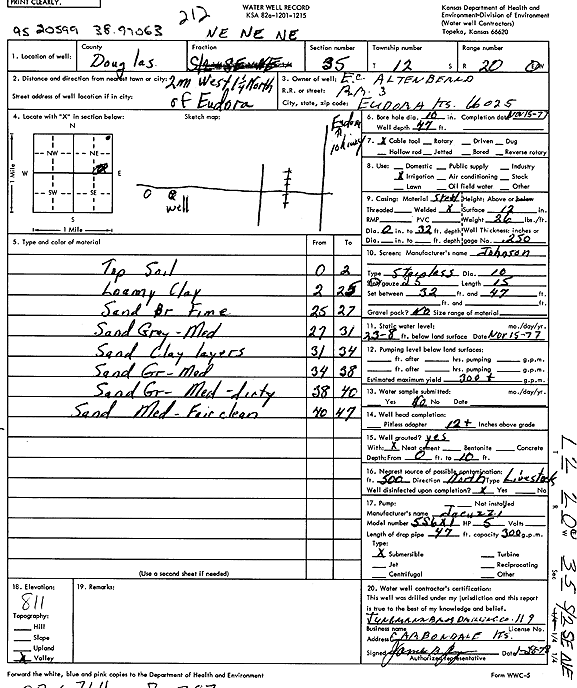 PRINT CLEARLY.
212
WATER WELL RECORD
KSA 82a-1201-1215
Kansas Department of Health and
Environment-Division of Environment
(Water well Contractors)
Topeka, Kansas 66620
95 20599 38.97063
NE NE NE
1. Location of well:
County
Douglas
Fraction
Section number
35
Township number
T 12 S
Range number
R 20
2. Distance and direction from nearest town or city: 2m West 1 1/4 North
Street address of well location if in city: of Eudora
3. Owner of well: E.C. ALTENBERND
R.R. or street: R.R. 3
City, state, zip code: EUDORA KS. 66025
4. Locate with "X" in section below:
Sketch map:
N
NW NE
W E
SW SE
S
1 Mile
1 Mile
Eudora
O
well
6. Bore hole dia. 10 in. Completion date Nov 15-77
Well depth 47 ft.
7. X Cable tool Rotary Driven Dug
Hollow rod Jetted Bored Reverse rotary
8. Use: Domestic Public supply Industry
X Irrigation Air conditioning Stock
Lawn Oil field water Other
9. Casing: Material Steel Height: Above or below
Threaded Welded X Surface 12 in.
RMP PVC Weight 26 lbs./ft.
Dia. 0 in. to 32 ft. depth Wall Thickness: inches or
Dia. in. to ft. depth gage No. .250
10. Screen: Manufacturer's name Johnson
Type Stainless Dia. 10
Length 15
Set between 32 ft. and 47 ft.
ft. and ft.
Gravel pack? No Size range of material
11. Static water level: mo./day/yr.
23-8 ft. below land surface Date Nov 15-77
12. Pumping level below land surfaces:
ft. after hrs. pumping g.p.m.
ft. after hrs. pumping g.p.m.
Estimated maximum yield 300+ g.p.m.
13. Water sample submitted: mo./day/yr.
Yes No Date
14. Well head completion:
Pitless adapter 12+ Inches above grade
15. Well grouted? yes
With: X Neat cement Bentonite Concrete
Depth: From 0 ft. to 10 ft.
16. Nearest source of possible contamination:
ft. 500 Direction North Type Livestock
Well disinfected upon completion? X Yes No
17. Pump: Not installed
Manufacturer's name Jacuzzi
Model number HP 5 Volts
Length of drop pipe 47 ft. capacity 300 g.p.m.
Type:
X Submersible Turbine
Jet Reciprocating
Centrifugal Other
5. Type and color of material From To
Top Soil 0 2
Loamy Clay 2 25
Sand Br Fine 25 27
Sand Grey-Med 27 31
Sand Clay layers 31 34
Sand Gr-Med 34 38
Sand Gr-Med-dirty 38 40
Sand Med-Fair clean 40 47
(Use a second sheet if needed)
18. Elevation:
811
Topography:
Hill
Slope
Upland
X Valley
19. Remarks:
20. Water well contractor's certification:
This well was drilled under my jurisdiction and this report
is true to the best of my knowledge and belief.
DRILLING CO. 119
Business name License No.
Address CARBONDALE KS.
Signed
Authorized representative
Forward the white, blue and pink copies to the Department of Health and Environment
Form WWC-5